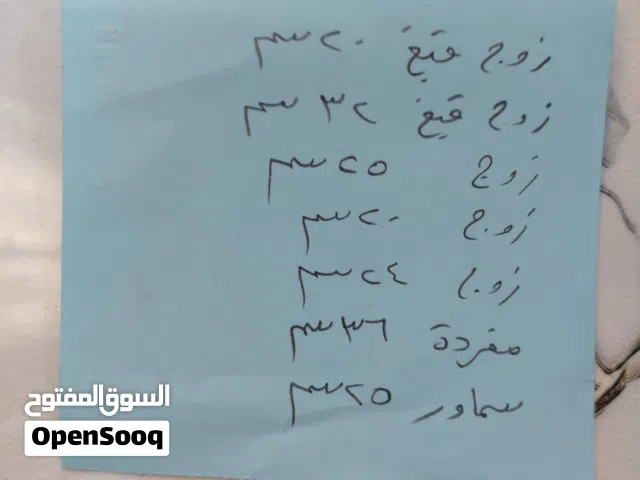 زوج قيغ ٢٠ سم
زوج قيغ ٣٢ سم
زوج ٢٥ سم
زوج ٢٠ سم
زوج ٢٤ سم
مفردة ٣٦ سم
سماور ٢٥ سم
السوق المفتوح
OpenSooq